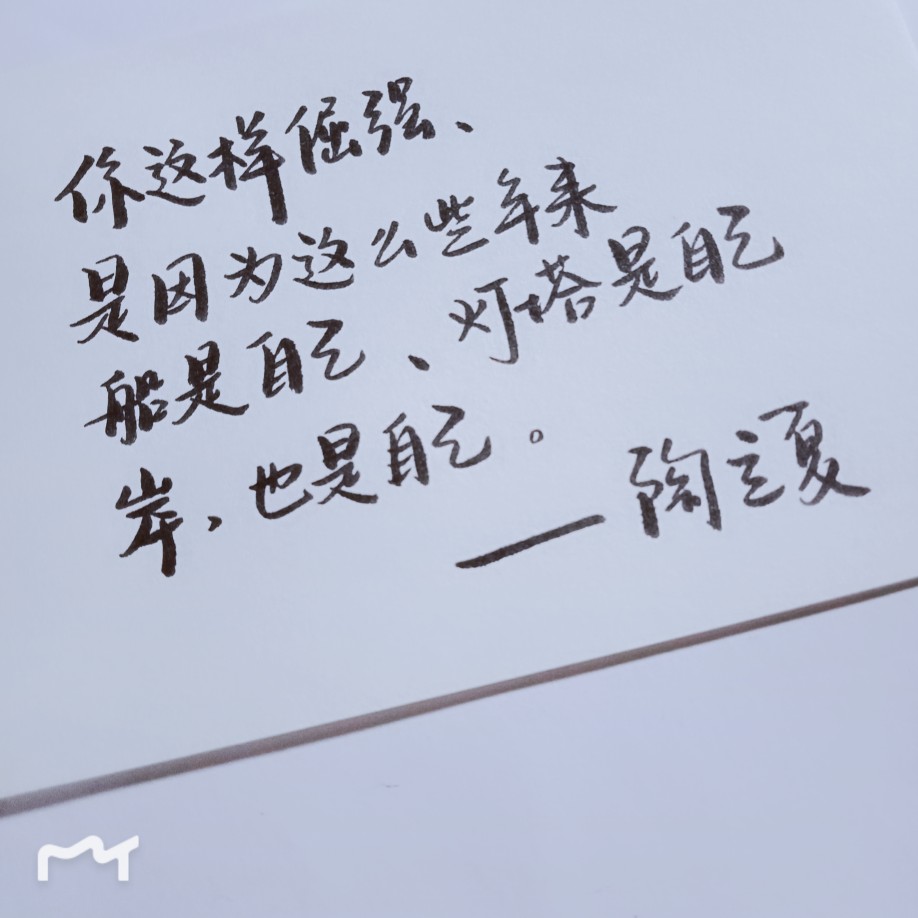 你这样倔强、
是因为这么些年来
船是自己、灯塔是自己
岸、也是自己。
——陶立夏